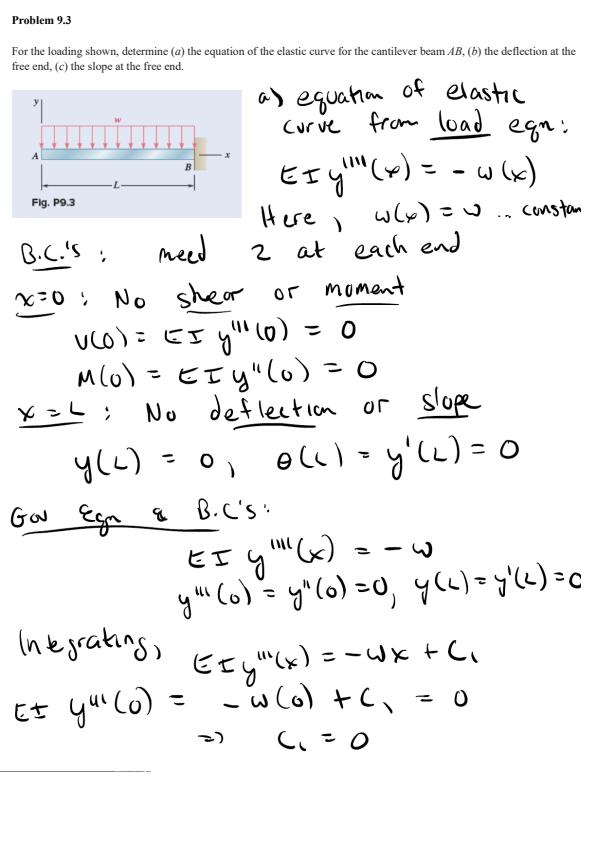 Problem 9.3
For the loading shown, determine (a) the equation of the elastic curve for the cantilever beam AB, (b) the deflection at the
free end, (c) the slope at the free end.
y
w
A
B
x
L
Fig. P9.3
a) equation of elastic
curve from load eqn:
EI y''''(x) = - w(x)
Here, w(x) = w ... constan
B.C.'s : need 2 at each end
x=0 : No shear or moment
V(0) = EI y'''(0) = 0
M(0) = EI y''(0) = 0
x=L : No deflection or slope
y(L) = 0, θ(L) = y'(L) = 0
Gov Eqn & B.C's:
EI y''''(x) = -w
y'''(0) = y''(0) = 0, y(L) = y'(L) = 0
Integrating, EI y'''(x) = -wx + C₁
EI y'''(0) = -w(0) + C₁ = 0
=> C₁ = 0